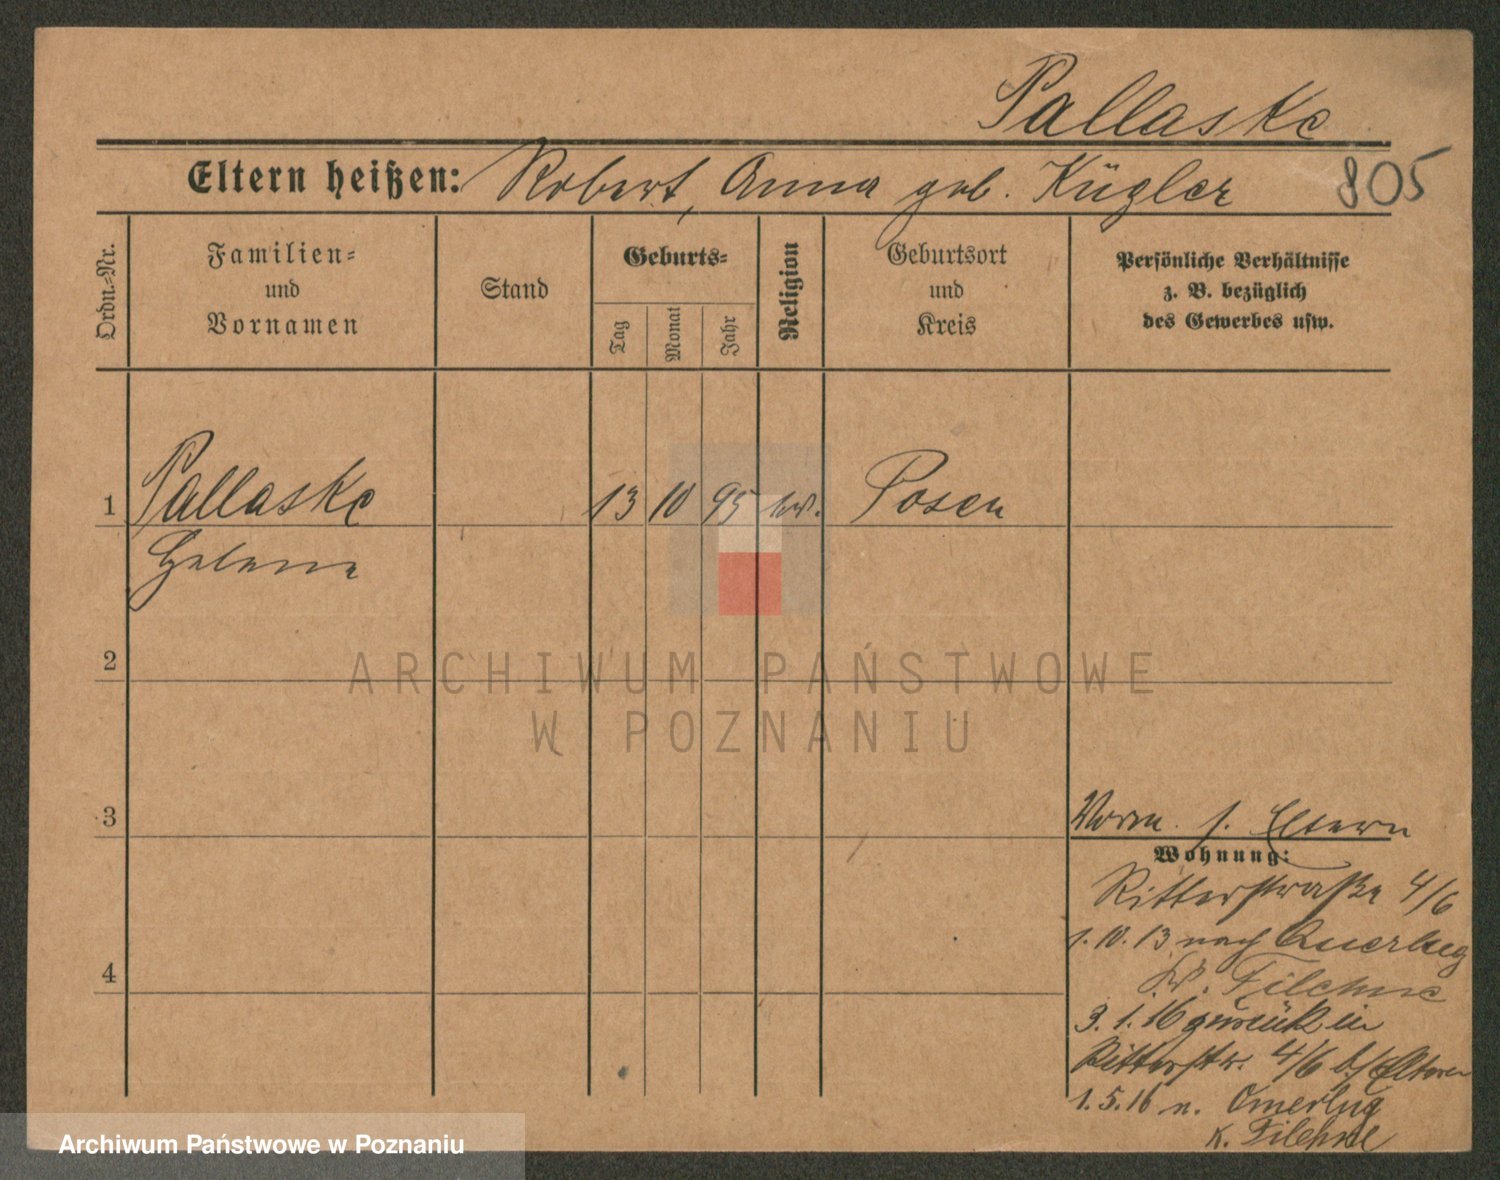 Pallaske
Eltern heißen: Robert, Anna geb. Kügler 805
Ordn.-Nr.
Familien-
und
Vornamen
Stand
Geburts-
Tag
Monat
Jahr
Religion
Geburtsort
und
Kreis
Persönliche Verhältnisse
z. B. bezüglich
des Gewerbes usw.
1 Pallaske 13 10 95 Posen
Helene
2
ARCHIWUM PAŃSTWOWE
W POZNANIU
3
Vorm. s. Eltern
Wohnung:
Ritterstraße 4/6
1.10.13 nach
Filehne
4
3.1.16 zurück in
Ritterstr. 4/6 b/Eltern
1.5.16 n.
K. Filehne
Archiwum Państwowe w Poznaniu